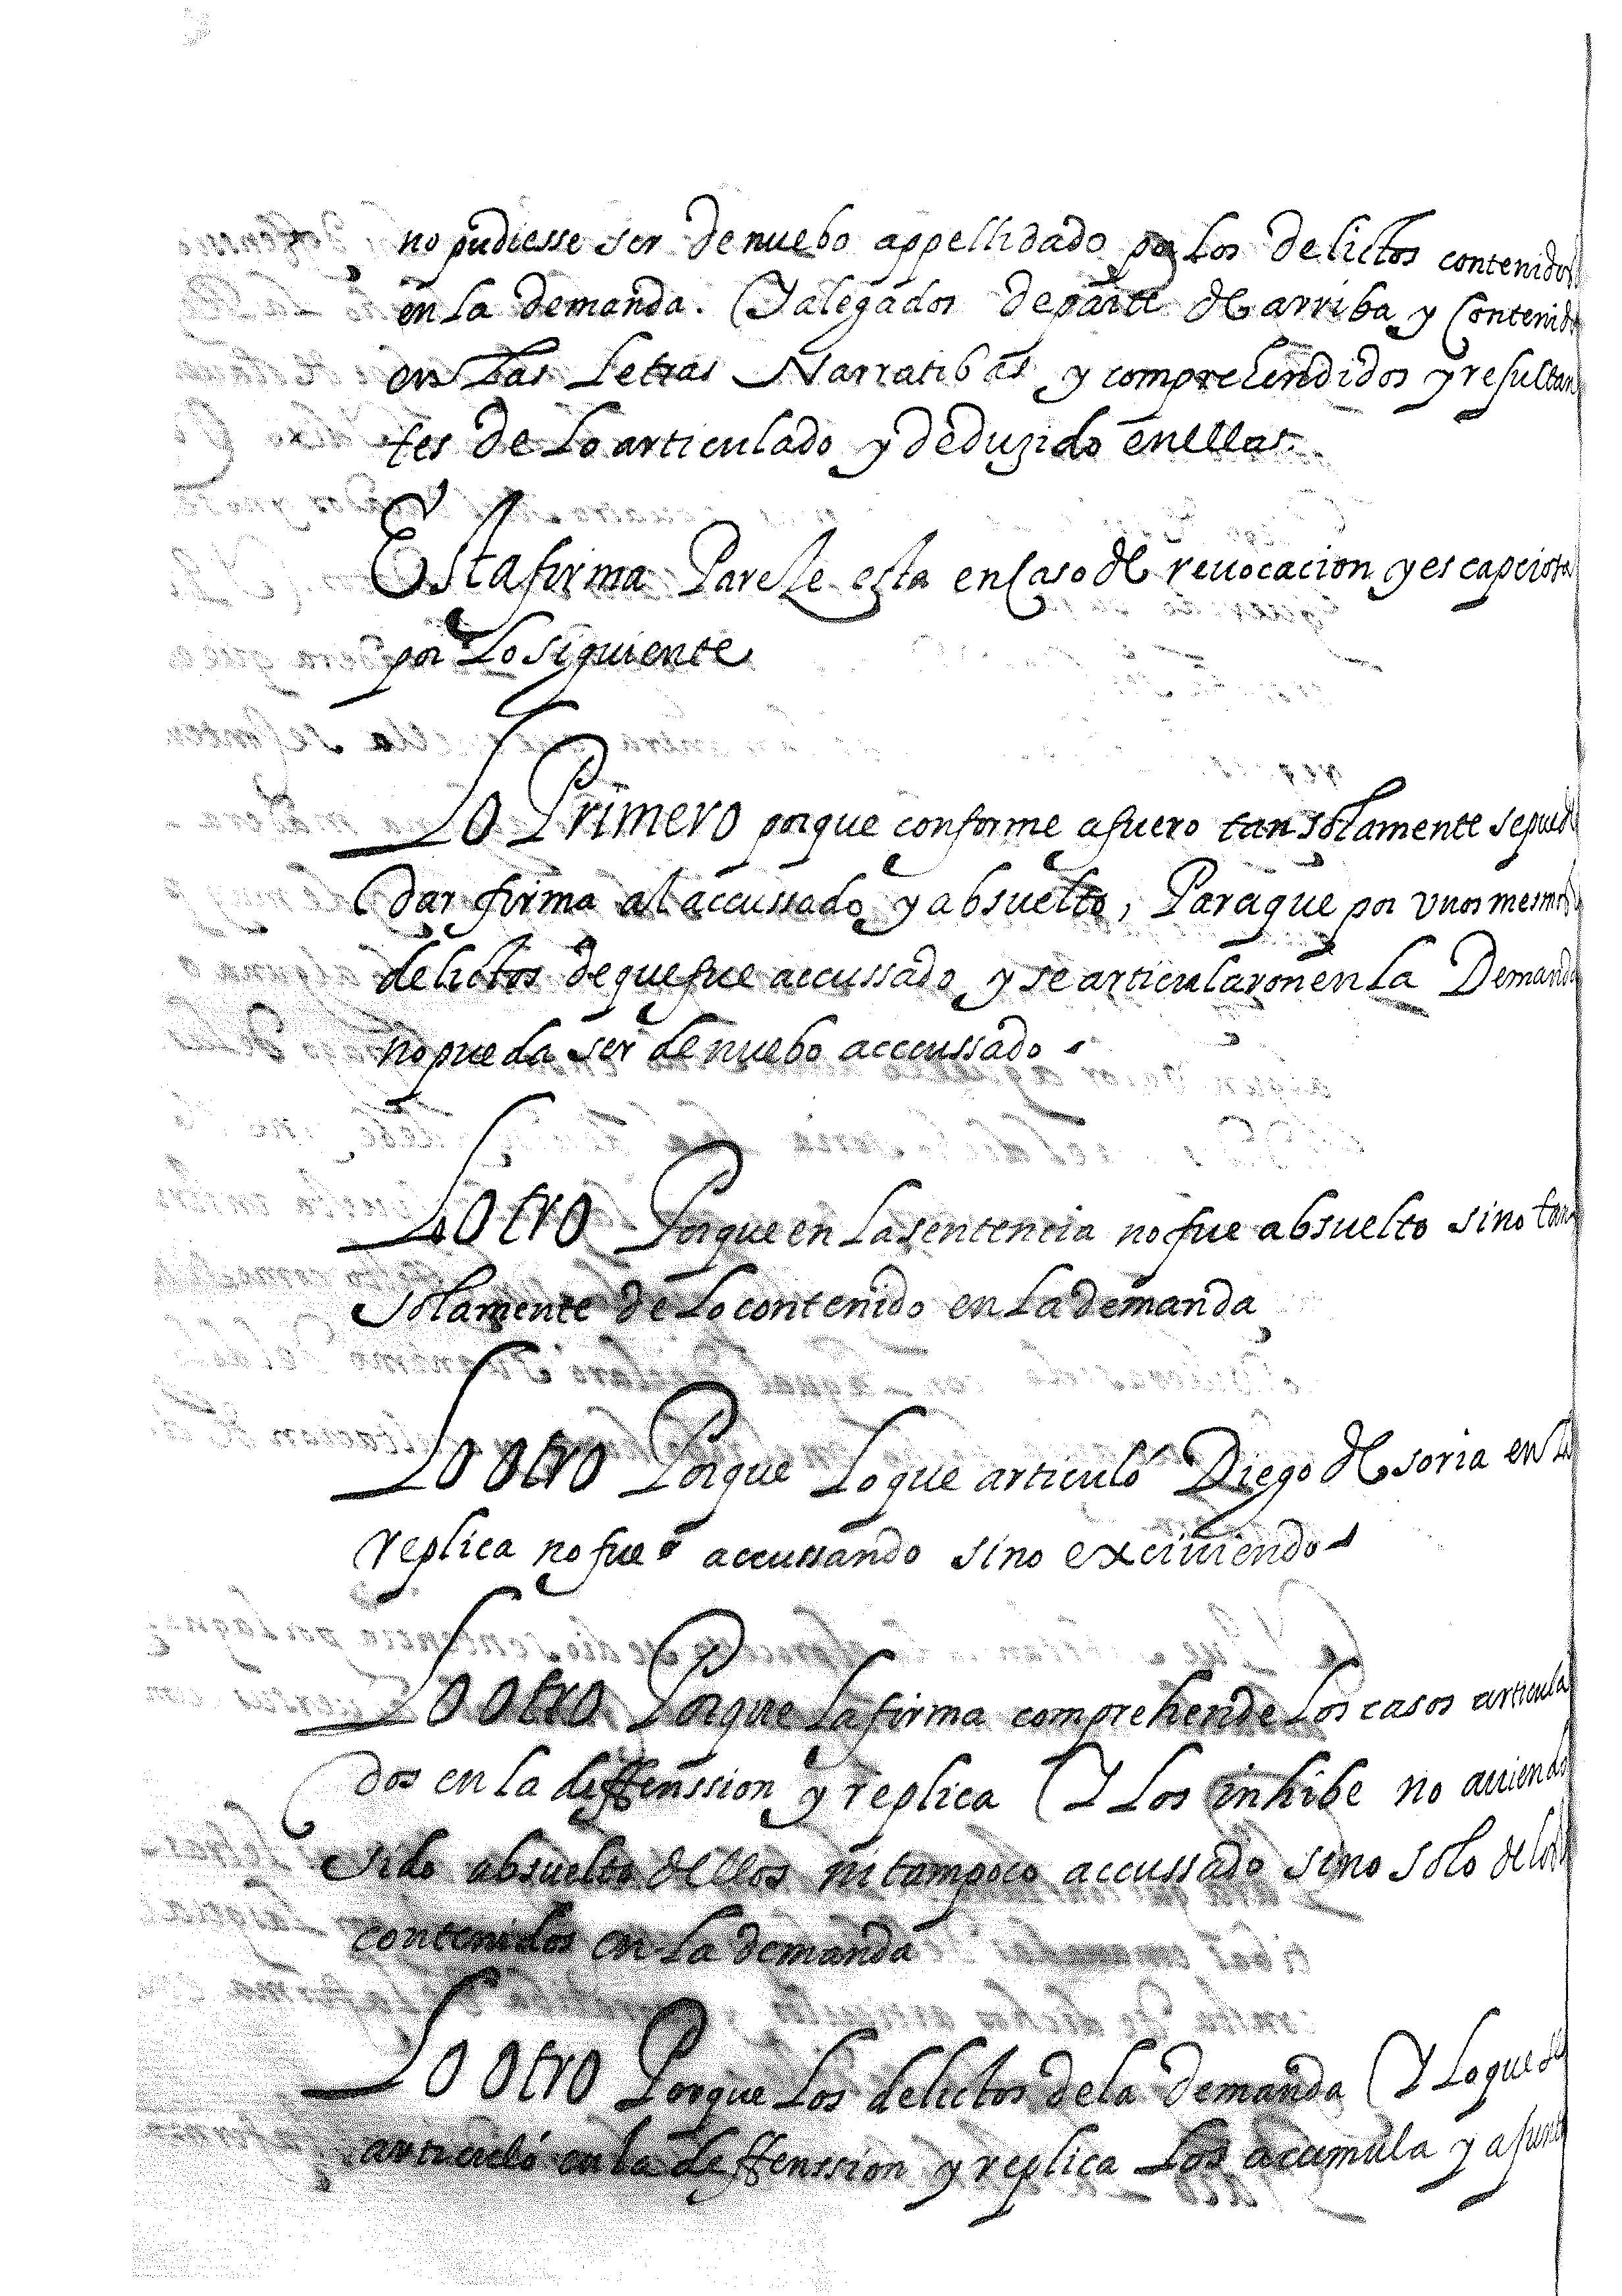 no pudiesse ser de nuebo appellidado por los delictos contenidos
en la demanda. Y alegados de parte de arriba y contenidos
en las letras Narratibas y comprehendidos y resultan
tes de lo articulado y deduzido en ellas.
Esta firma Paresce esta en caso de reuocacion y es capciosa
por lo siguiente
Lo Primero porque conforme a fuero tan solamente se puede
dar firma al accussado y absuelto, Paraque por unos mesmos
delictos de que fue accussado y se articularon en la Demanda
no pueda ser de nuebo acccussado
Lo otro Porque en la sentencia no fue absuelto sino tan
solamente de lo contenido en la demanda
Lo otro Porque lo que articuló Diego de soria en la
replica no fue accussando sino exciuiendo
Lo otro Porque la firma comprehende los casos articula
dos en la deffenssion y replica Y los inhibe no auiendo
sido absuelto dellos ni tampoco accussado sino solo de los
contenidos en la demanda
Lo otro Porque los delictos de la demanda Y lo que se
articuló en la deffenssion y replica los acumula y a junta